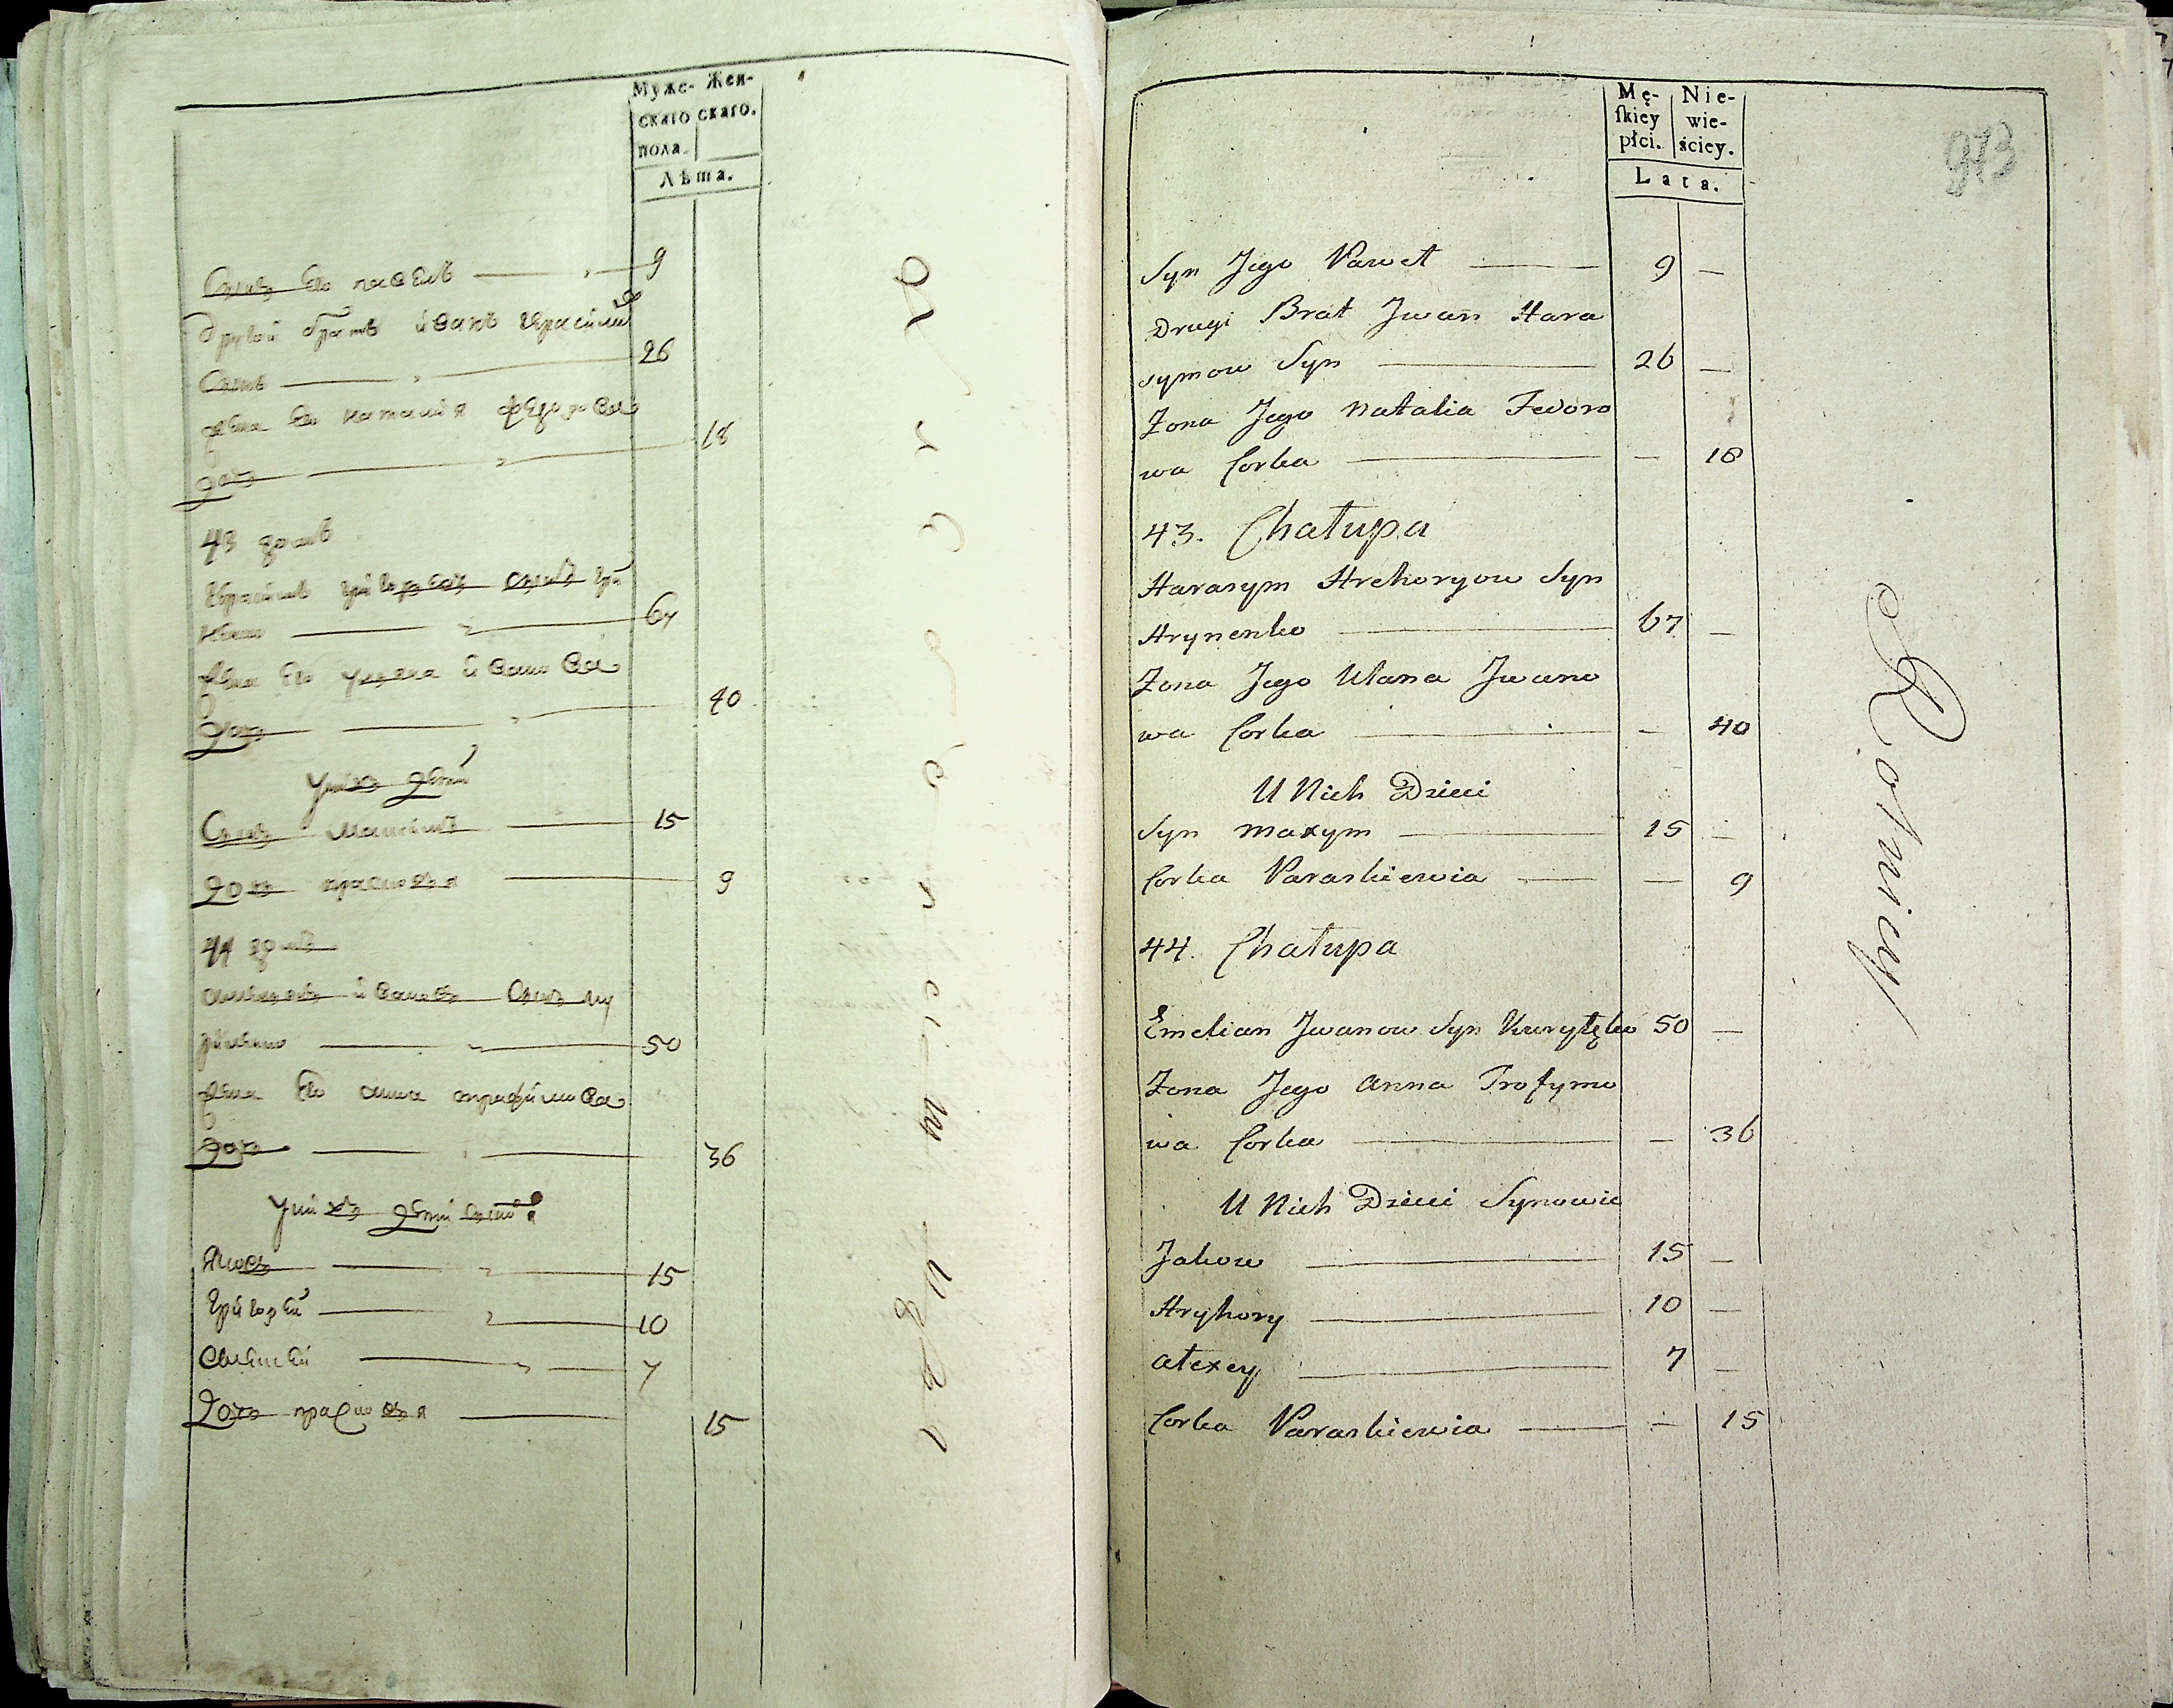 Муже- Жен-
скаго скаго.
пола.
Лѣта.
Сынъ Его павелъ 9
Другой братъ иванъ Герасимо
Сынъ 26
Жена Его наталия федорова
дочь 18
43 домъ
67
Жена Его уляна иванова
дочь 40
у нихъ дѣти
Сынъ Максимъ 15
дочь прасковья 9
44 домъ
иванов Сынъ
50
Жена Его анна трофимова
дочь 36
у нихъ дѣти
Яковъ 15
Григорей 10
Алексей 7
Дочь прасковья 15
Mę- Nie-
ſkiey wie-
płci. ściey.
Lata.
973
Syn Jego Paweł — 9 —
Drugi Brat Jwan Hara
symow Syn — 26 —
Zona Jego Natalia Fedoro
wa Corka — — 18
43. Chałupa
Harasym Hrehoryow Syn
Hrynenko — 67 —
Zona Jego Ulana Jwano
wa Corka — — 40
U Nich Dzieci
Syn Maxym — 15 —
Corka Paraskiewia — — 9
44. Chałupa
Emelian Jwanow Syn 50 —
Zona Jego Anna Trofymo
wa Corka — — 36
U Nich Dzieci Synowie
Jakow — 15 —
Hryhory — 10 —
Alexey — 7 —
Corka Paraskiewia — — 15
Rolnicy